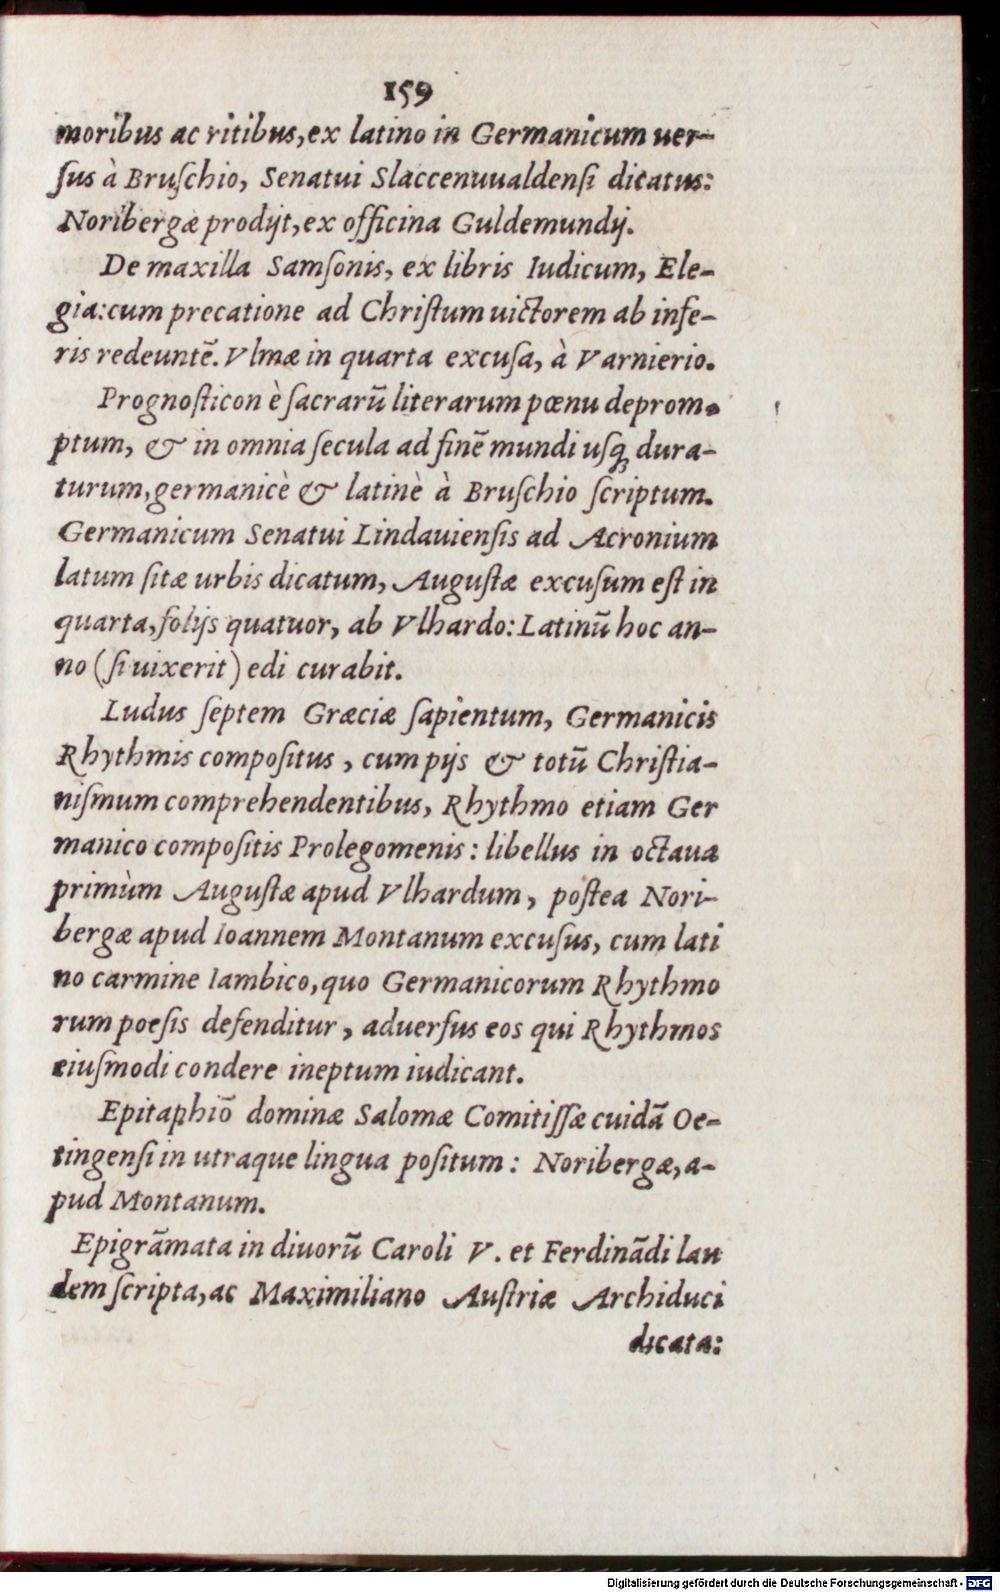 159
moribus ac ritibus, ex latino in Germanicum uer-
ſus à Bruſchio, Senatui Slaccenuualdenſi dicatus:
Noribergæ prodijt, ex officina Guldemundij.
De maxilla Samſonis, ex libris Iudicum, Ele-
gia: cum precatione ad Chriſtum uictorem ab infe-
ris redeuntē. Vlmæ in quarta excuſa, à Varnierio.
Prognoſticon è ſacrarū literarum pœnu deprom-
ptum, & in omnia ſecula ad finē mundi uſq́; dura-
turum, germanicè & latinè à Bruſchio ſcriptum.
Germanicum Senatui Lindauienſis ad Acronium
latum ſitæ urbis dicatum, Auguſtæ excuſum eſt in
quarta, folijs quatuor, ab Vlhardo: Latinū hoc an-
no (ſi uixerit) edi curabit.
Ludus ſeptem Græciæ ſapientum, Germanicis
Rhythmis compoſitus, cum pijs & totū Chriſtia-
niſmum comprehendentibus, Rhythmo etiam Ger
manico compoſitis Prolegomenis: libellus in octaua
primùm Auguſtæ apud Vlhardum, poſtea Nori-
bergæ apud Ioannem Montanum excuſus, cum lati
no carmine Iambico, quo Germanicorum Rhythmo
rum poeſis defenditur, aduerſus eos qui Rhythmos
eiuſmodi condere ineptum iudicant.
Epitaphiō dominæ Salomæ Comitiſſæ cuidā Oe-
tingenſi in utraque lingua poſitum: Noribergæ, a-
pud Montanum.
Epigrāmata in diuorū Caroli V. et Ferdinādi lau
dem ſcripta, ac Maximiliano Auſtriæ Archiduci
dicata:
Digitalisierung gefördert durch die Deutsche Forschungsgemeinschaft - DFG